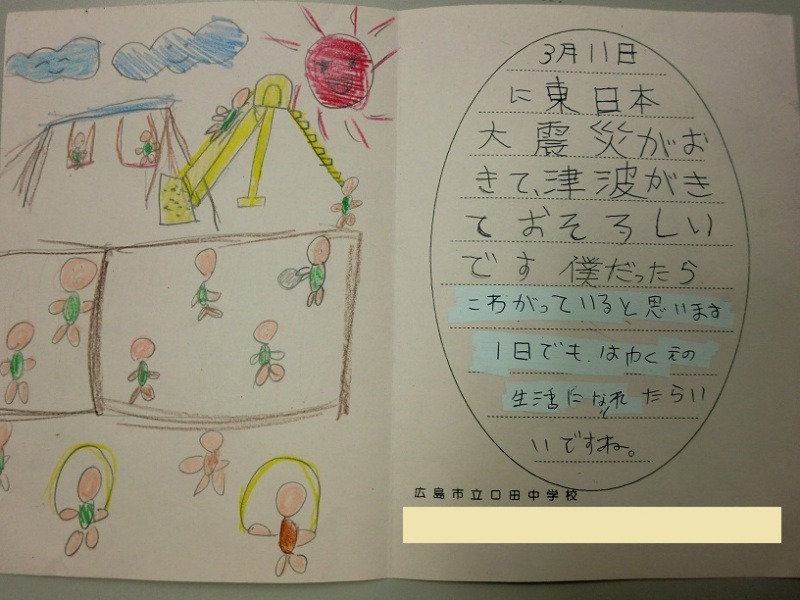 3月11日
に東日本
大震災がお
きて、津波がき
ておそろしい
です僕だったら
こわがっていると思います
1日でもはやくえの
生活になれたらい
いですね。
広島市立口田中学校